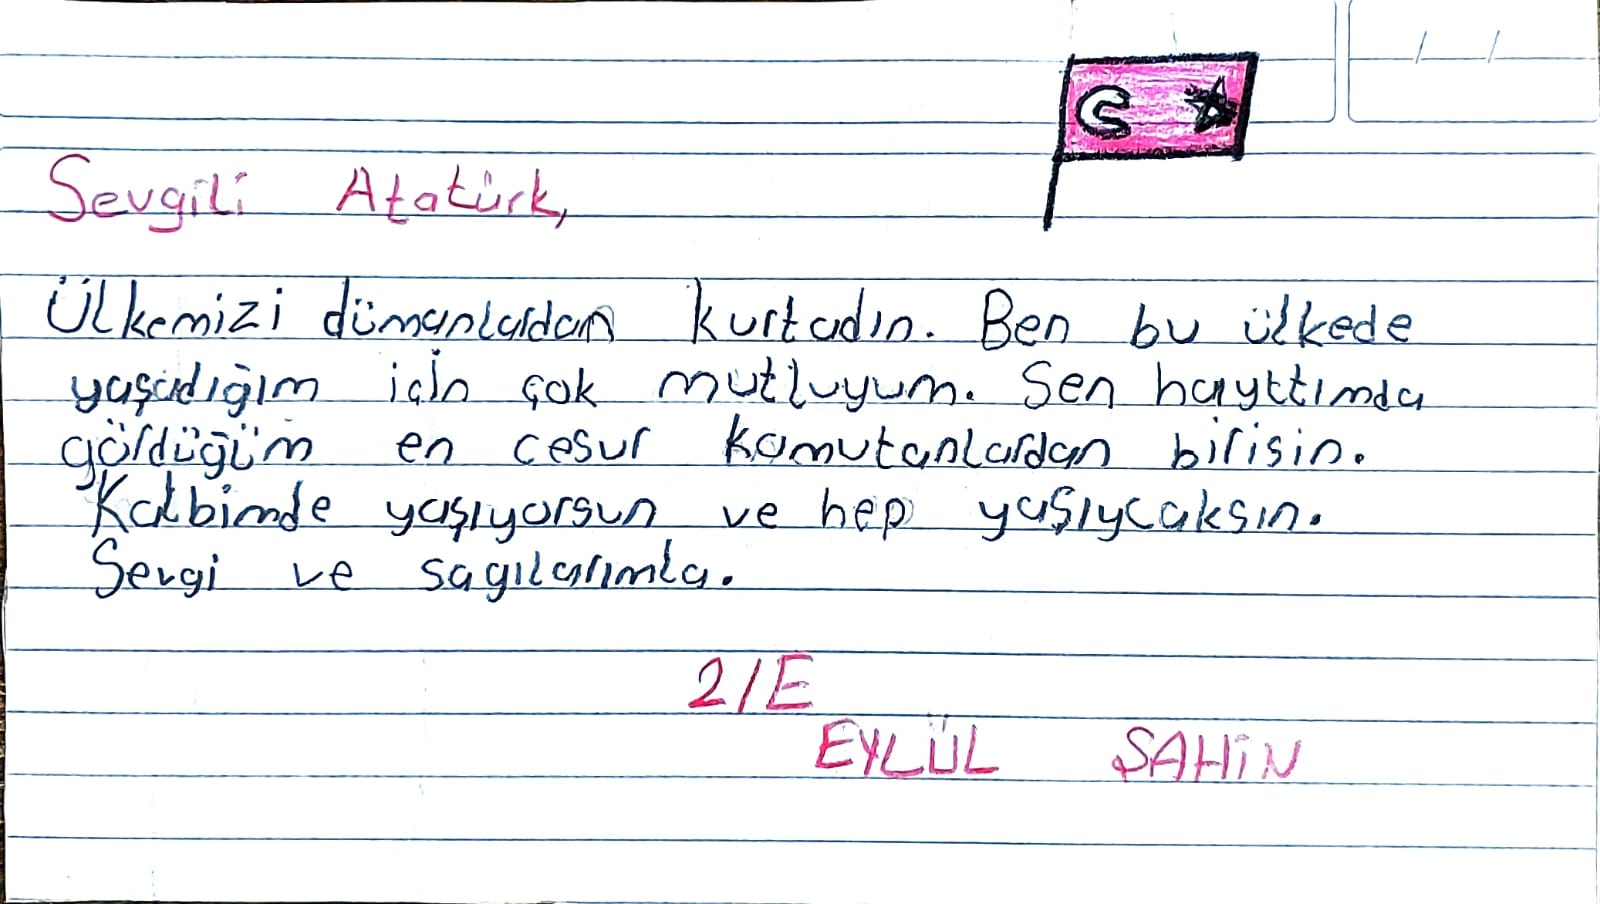 Sevgili Atatürk,
Ülkemizi dümanlardan kurtadın. Ben bu ülkede
yaşadığım için çok mutluyum. Sen hayttımda
gördüğüm en cesur komutanlardan birisin.
Kalbimde yaşıyorsun ve hep yaşıycaksın.
Sevgi ve sagılarımla.
2/E
EYLÜL ŞAHİN